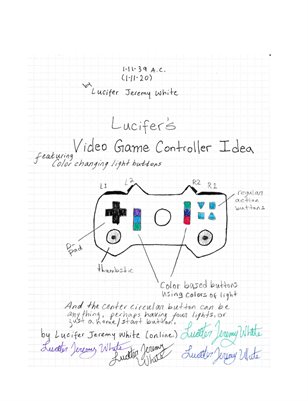 1-11-39 A.C.
(1-11-20)
by Lucifer Jeremy White
Lucifer's
Video Game Controller Idea
featuring
color changing light buttons
L1 L2 R2 R1
regular
action
buttons
D-
pad
thumbstic
Color based buttons
using colors of light
And the center circular button can be
anything, perhaps having four lights, or
just a home/start button.
by Lucifer Jeremy White (online) Lucifer Jeremy White
Lucifer Jeremy White Lucifer Jeremy White Lucifer Jeremy White